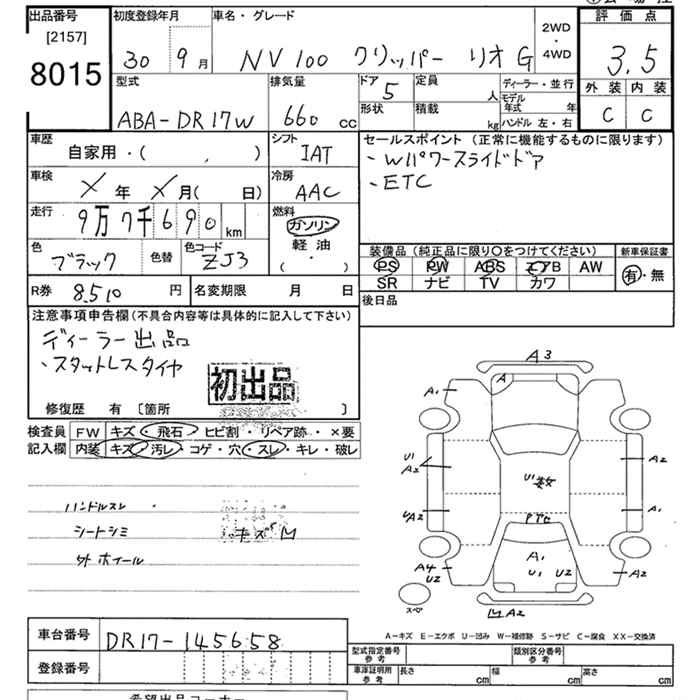 出品番号
[2157]
8015
初度登録年月
30 9月
車名・グレード
NV100 クリッパー リオ G
2WD
・
4WD
評価点
3.5
外装 内装
C C
型式
ABA-DR17W
排気量
660 cc
ドア
5
形状
定員
人
積載
kg
ディーラー・並行
モデル
年式 年
ハンドル 左・右
車歴
自家用・( , )
シフト
IAT
車検
メ 年 メ 月( 日)
冷房
AAC
走行
9万7千690 km
燃料
ガソリン
軽油
( ・ )
色
ブラック
色替
色コード
ZJ3
R券 8,510 円
名変期限 月 日
セールスポイント (正常に機能するものに限ります)
・Wパワースライドドア
・ETC
装備品(純正品に限り○をつけてください)
PS PW ABS エアB AW
SR ナビ TV カワ
新車保証書
有・無
後日品
注意事項申告欄(不具合内容等は具体的に記入して下さい)
ディーラー出品
・スタットレスタイヤ
初出品
修復歴 有 〔箇所 〕
検査員
記入欄
FW キズ・飛石・ヒビ割・リペア跡・×要
内装 キズ・汚レ・コゲ・穴・スレ・キレ・破レ
ハンドルスレ
シートシミ キズ
外ホイール
A3
A
A1
U1
A2
A2
U1数
UA2
A1
PTE
A1
U1 U2
A4
U2
A2
スペ
A2
A-キズ E-エクボ U-凹み W-補修跡 S-サビ C-腐食 XX-交換済
車台番号 DR17-145658
登録番号
型式指定番号
参考
類別区分番号
参考
車庫証明用
参考
長さ cm 幅 cm 高さ cm
希望出品コーナー